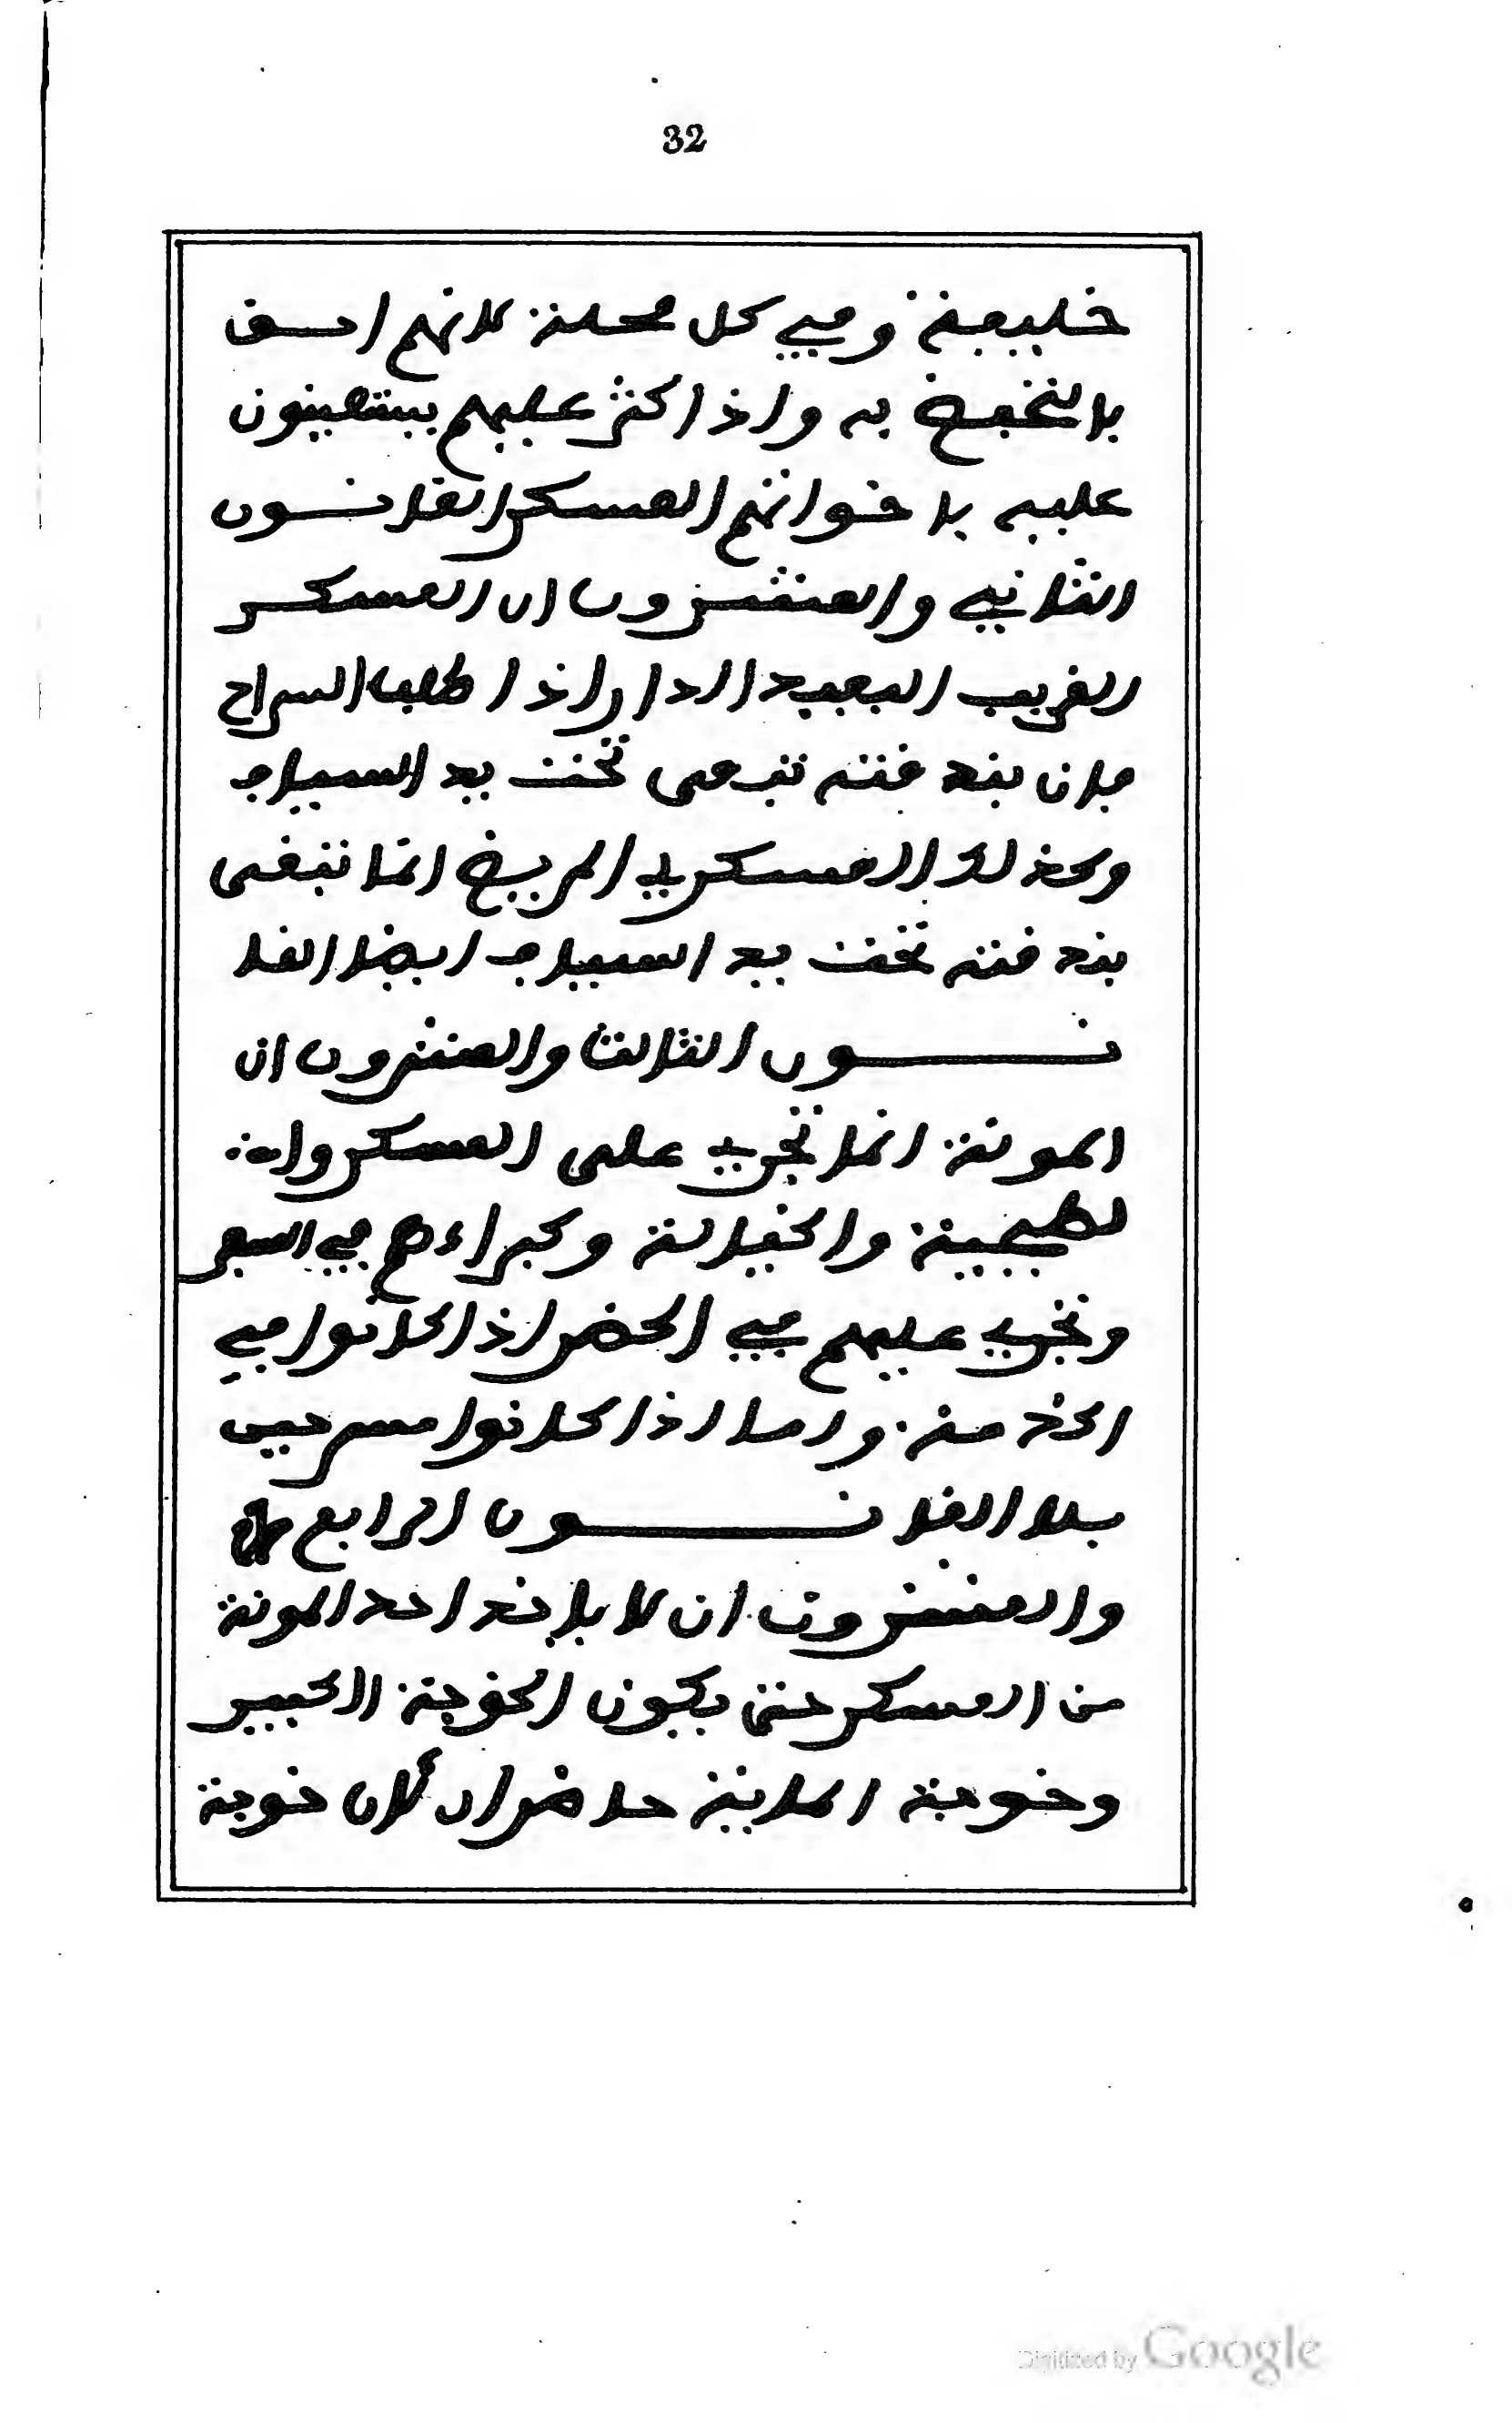 32
خليفة وفي كل محلة لانهم احق
بالتحفظ به واذا كثر عليهم يستعينون
عليه باخوانهم العسكر القانــون
الثاني والعشرون ان العسكر
الغريب البعيد الدار اذا طلب السراح
فان بندقته تبقى تحت يد السياف
وكذلك العسكري المريض انما تبقى
بندقته تحت يد السياف ايضا القا
نـــون الثالث والعشرون ان
المونة انما تجري على العسكر وا
لطبجية والخيالة وكبراءهم في السفر
وتجري عليهم في الحضر اذا كانوا في
الخدمة واما اذا كانوا مسرحين
فلا القانـــون الرابع
والعشرون ان لا ياخذ احد المونة
من العسكر حتى يكون الخوجة الكبير
وخوجة الماية حاضران لأن خوجة
Digitized by Google